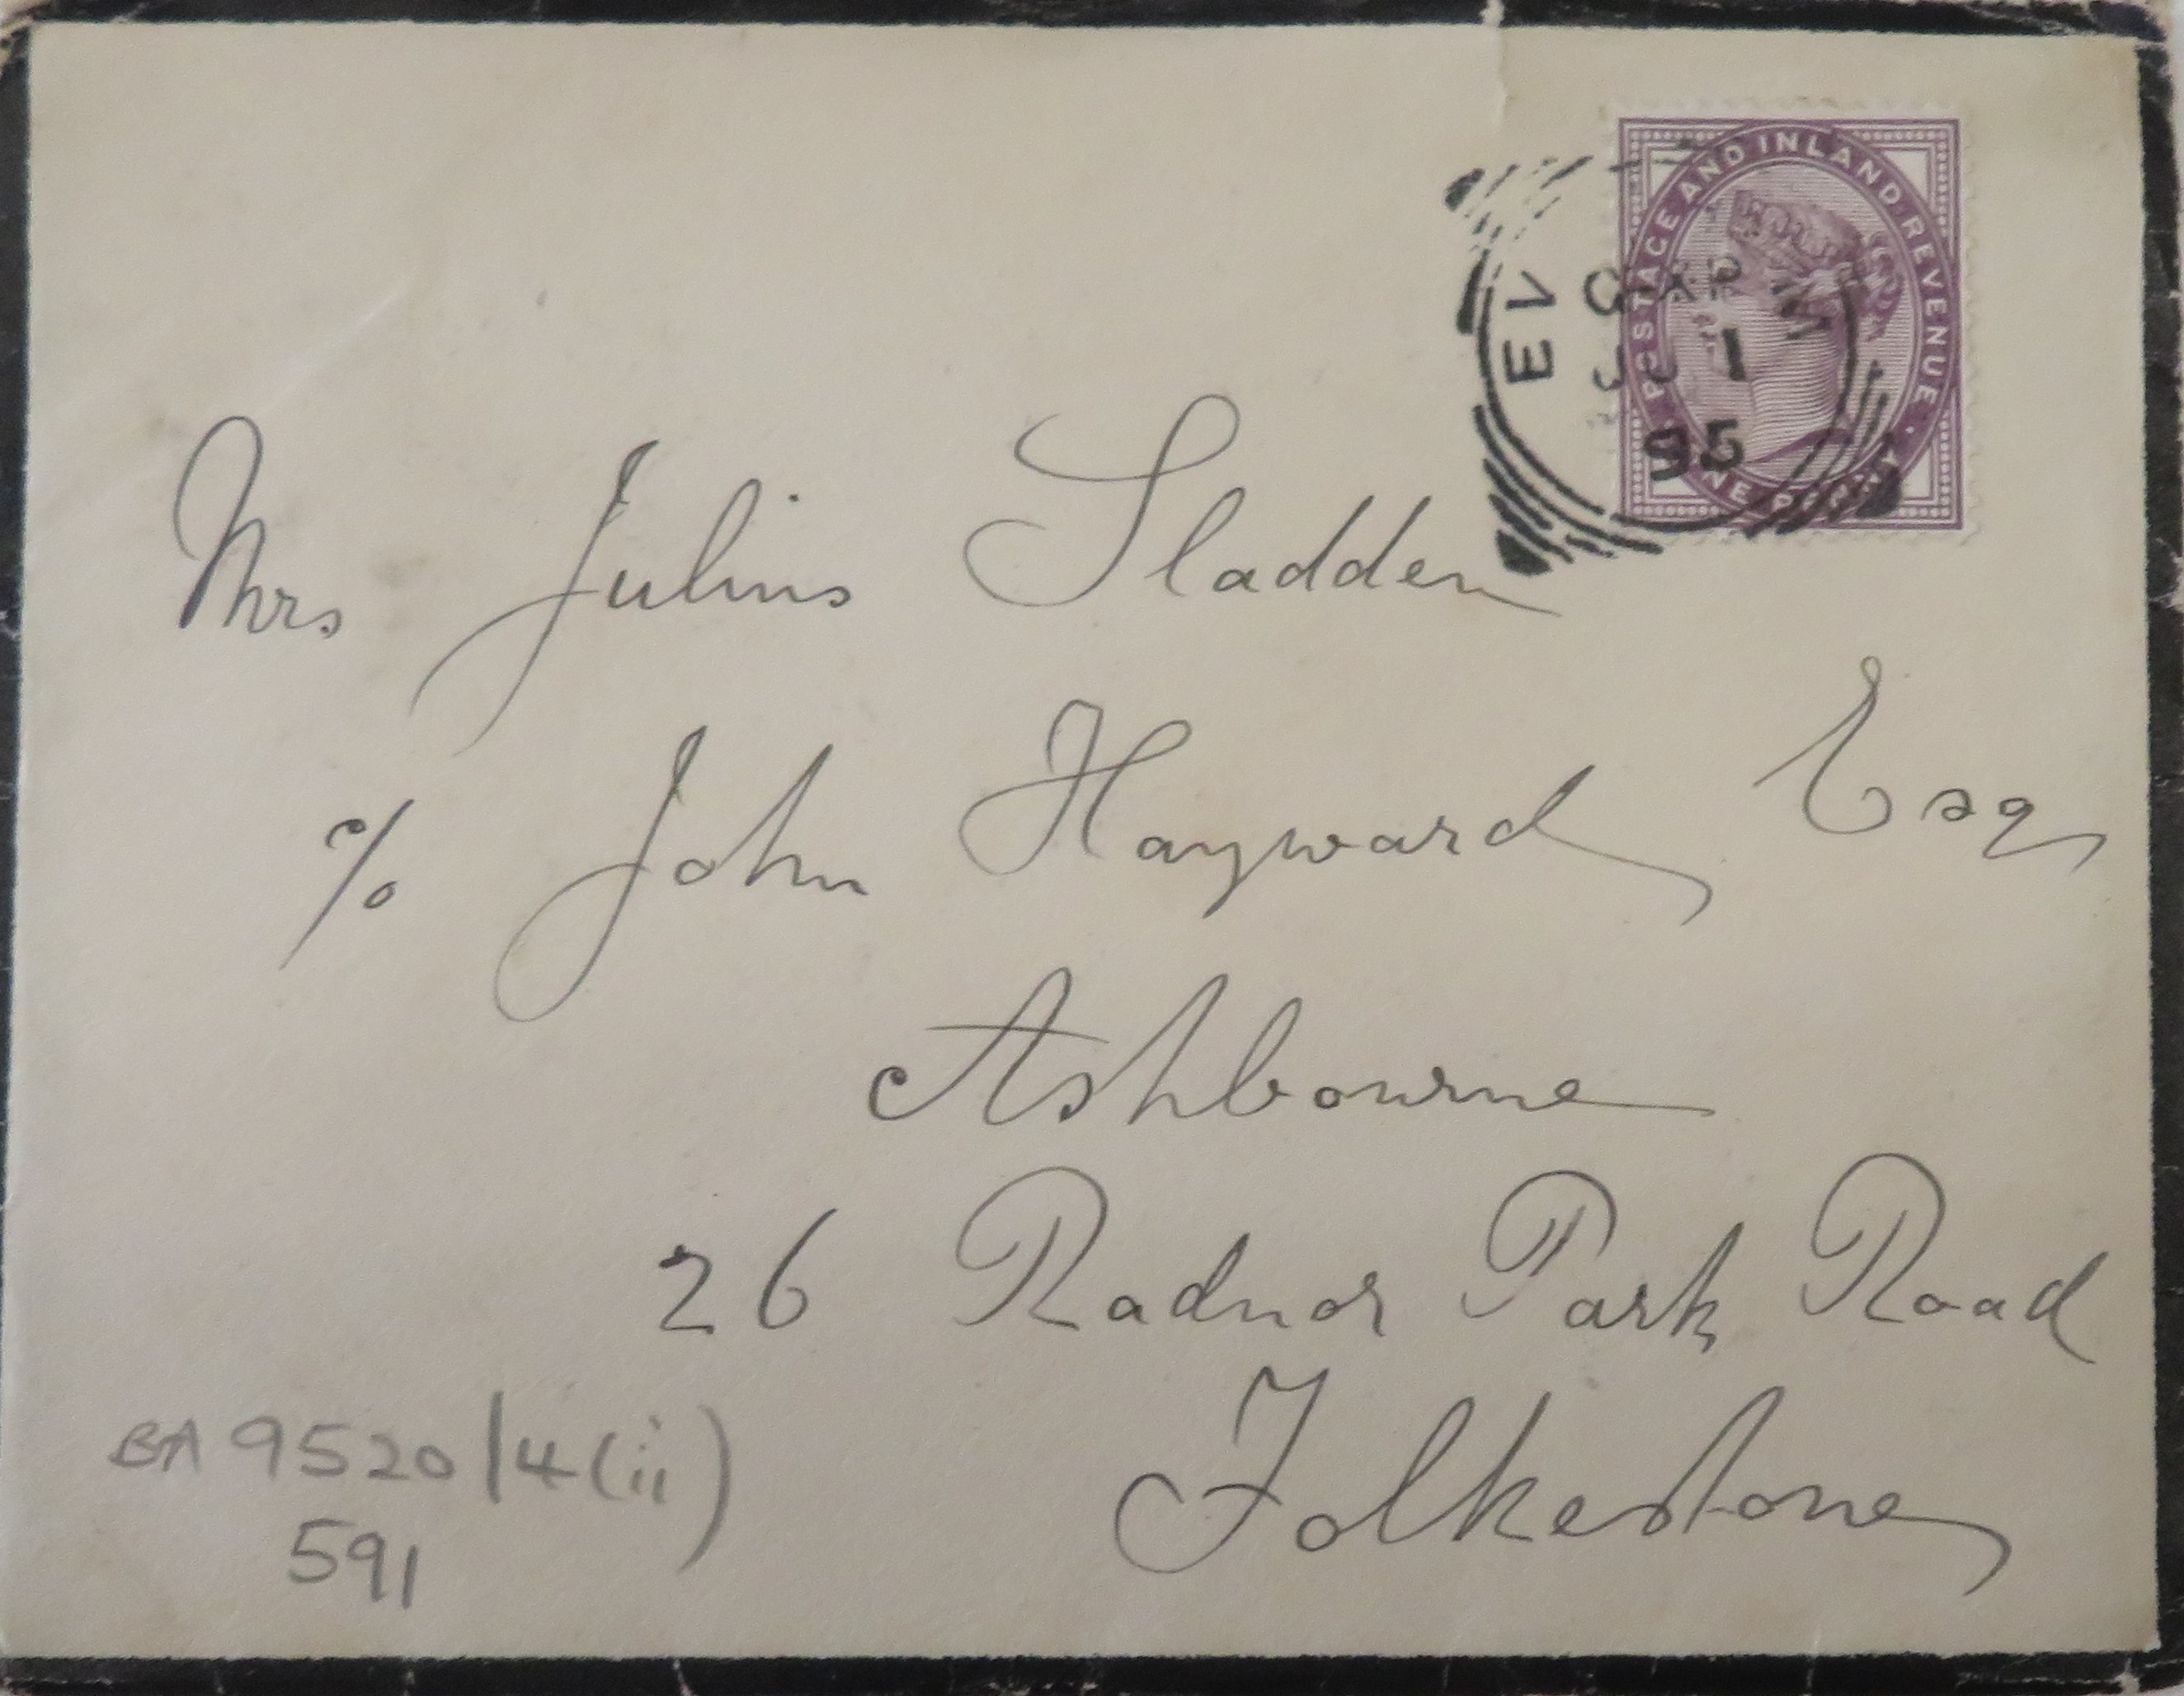 POSTAGE AND INLAND REVENUE
95
Mrs Julius Sladden
c/o John Hayward Esq
Ashbourne
26 Radnor Park Road
Folkestone
BA 9520/4(ii)
591